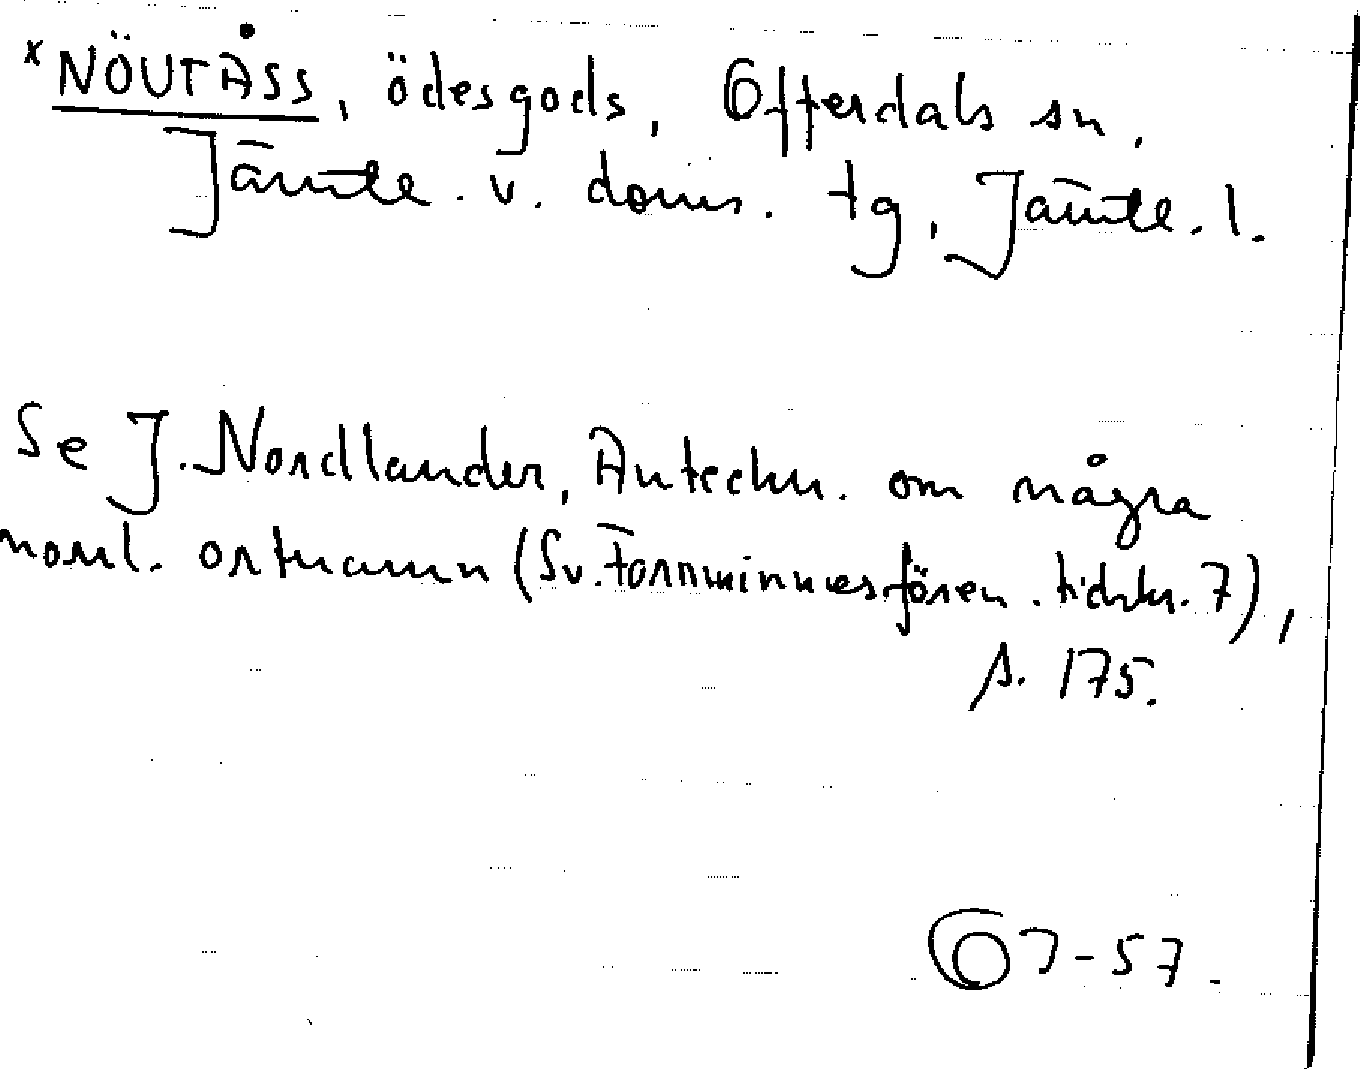 *NÖUTÅSS, ödesgods, Offerdals sn,
Jämtl. v. doms. tg, Jämtl. l.
Se J. Nordlander, Anteckn. om några
norrl. ortnamn (Sv. Fornminnesfören. tidskr. 7),
s. 175.
-57.